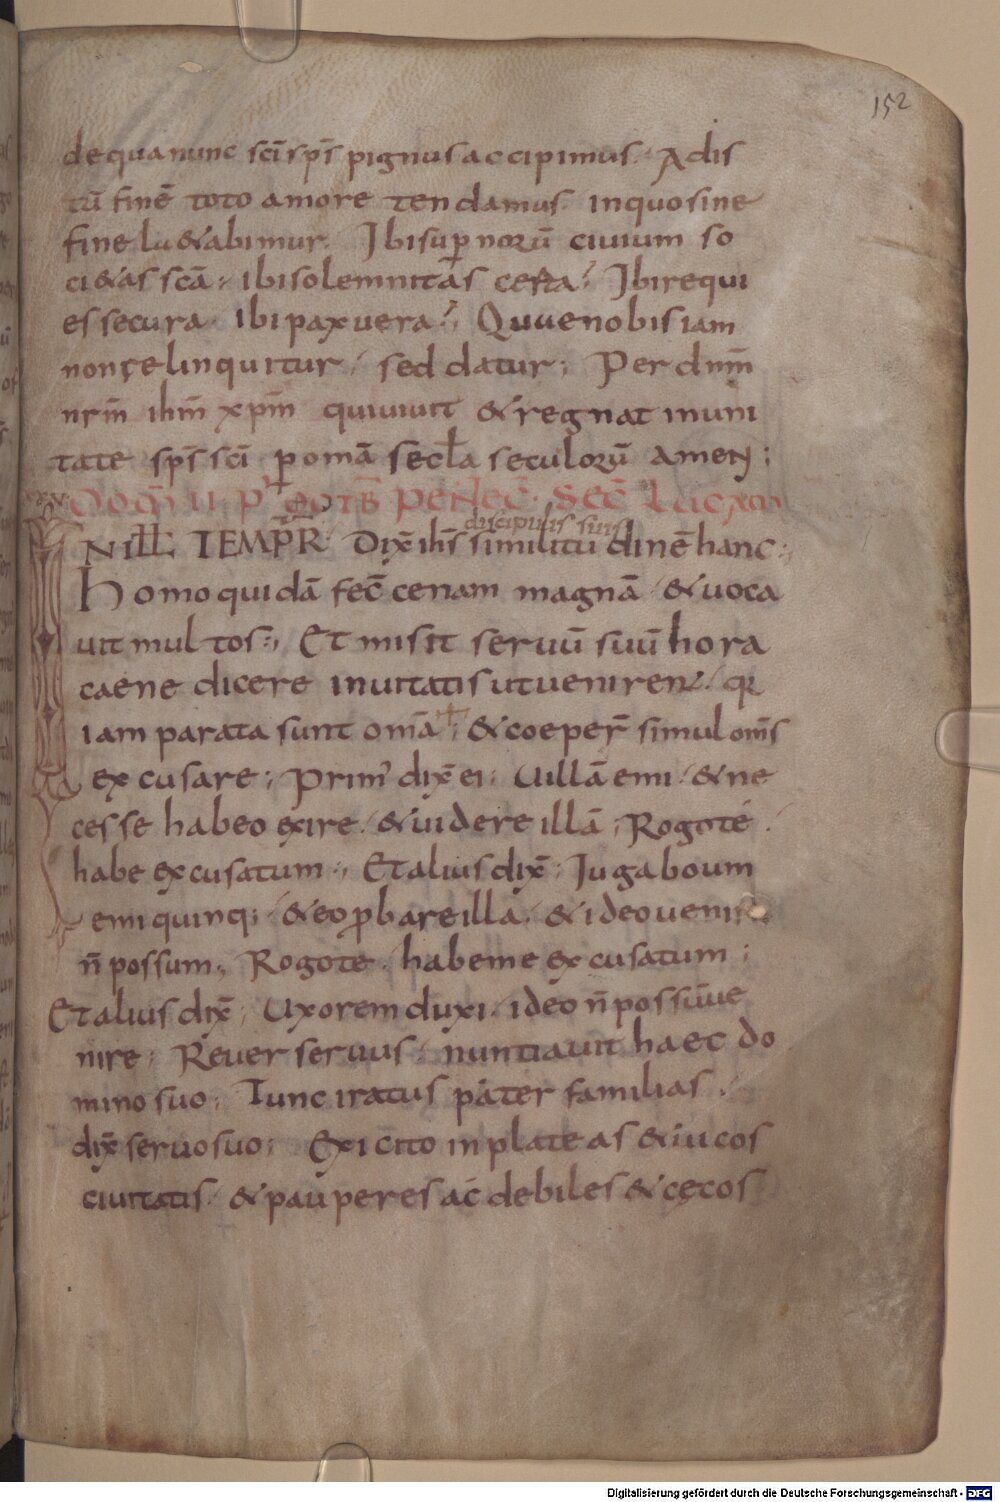 152
de qua nunc sc̄i sp̄s pignus accipimus. Ad is
tū finē toto amore tendamus. in quo sine
fine lu&abimur. Ibi sup̲norū ciuium so
ci&as scā; ibi solemnitas certa; Ibi requi
es secura. ibi pax uera; Quuenobis iam
non relinquitur, sed datur; Per dn̄m
nr̄m ih̄m xp̄m qui uiuit & regnat in uni
tate sp̄s sc̄i p̲ om̄a secl̄a seculorū amen;
sec̄ Luc
discipulis suis
N ILL̄ TEMPR̄ Dix̄ ih̄s similitudinē hanc;
Homo quidā fec̄ cenam magnā & uoca
uit multos; Et misit seruū suū hora
caene dicere inuitatis ut uenirent. q̄
iam parata sunt om̄a; & coeper̄ simul om̄s
excusare; Prim' dix̄ ei; Uillā emi & ne
cesse habeo exire. & uidere illā; Rogo te
habe excusatum; Et alius dix̄; Iuga boum
emi quinq; & eo p̲bare illa. & ideo uenire
n̄ possum; Rogo te. habe me excusatum;
Et alius dix̄; Uxorem duxi. ideo n̄ possū ue
nire; Reuer seruus nuntiauit haec do
mino suo; Tunc iratus pater familias
dix̄ seruo suo; Exi cito in plateas & uicos
ciuitatis. & pauperes ac debiles & cęcos
Digitalisierung gefördert durch die Deutsche Forschungsgemeinschaft - DFG